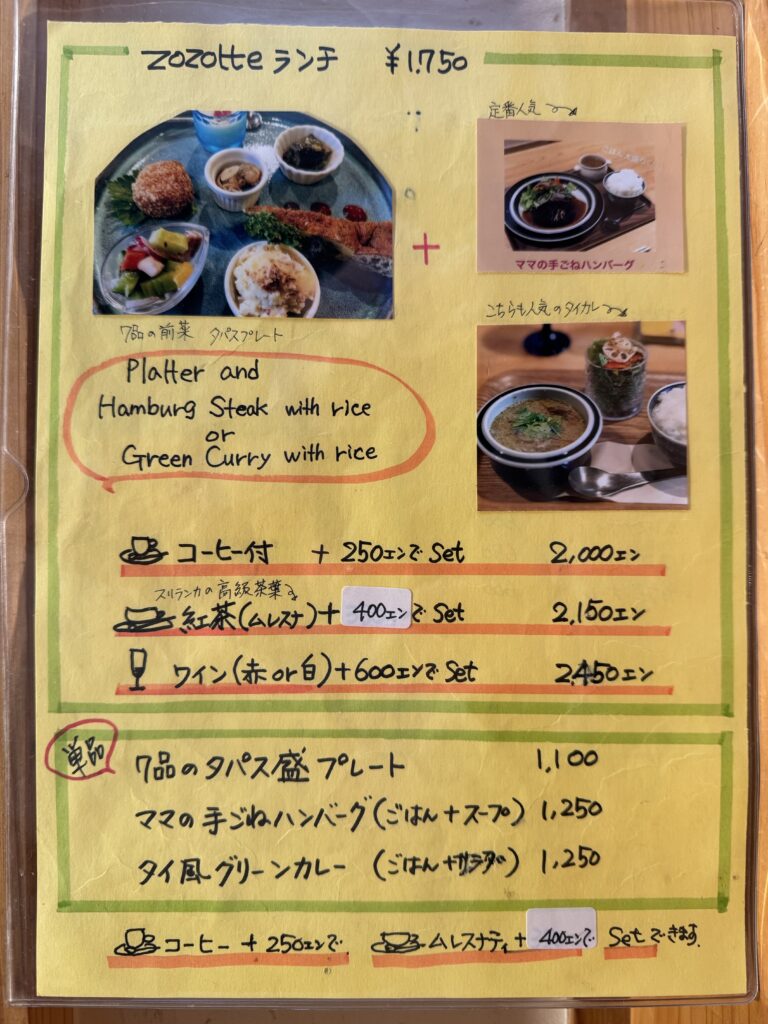 zozotte ランチ ¥1,750
定番人気
ママの手ごねハンバーグ
+
こちらも人気のタイカレー
7品の前菜 タパスプレート
Platter and
Hamburg Steak with rice
or
Green Curry with rice
コーヒー付 +250エンで Set 2,000エン
スリランカの高級茶葉
紅茶(ムレスナ)+400エンで Set 2,150エン
ワイン(赤or白)+600エンで Set 2,450エン
単品
7品のタパス盛プレート 1,100
ママの手ごねハンバーグ(ごはん+スープ) 1,250
タイ風グリーンカレー (ごはん+サラダ) 1,250
コーヒー+250エンで ムレスナティ+400エンで Setできます.